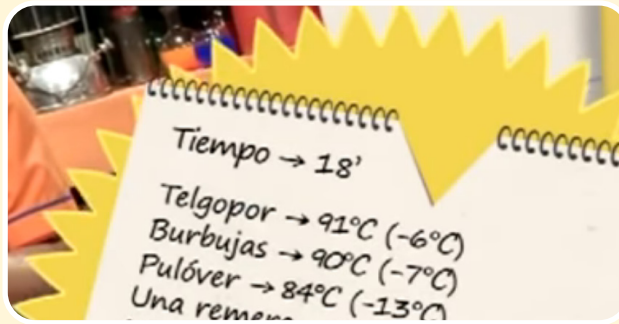 Tiempo → 18'
Telgopor → 91°C (-6°C)
Burbujas → 90°C (-7°C)
Pulóver → 84°C (-13°C)
Una remera